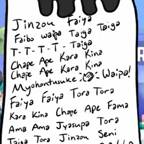 Jinzou Faiya
Faibo waipa Taiga
T-T-T-T-Taiga
Chape Ape Kara Kina
Chape Ape Kara Kina
Myohontusuke Waipa!
Faiya Faiya Tora Tora
Kara Kina Chape Ape Fama
Ama Ama Jyasupa Tora
Taiga Tora Jinzou Seni